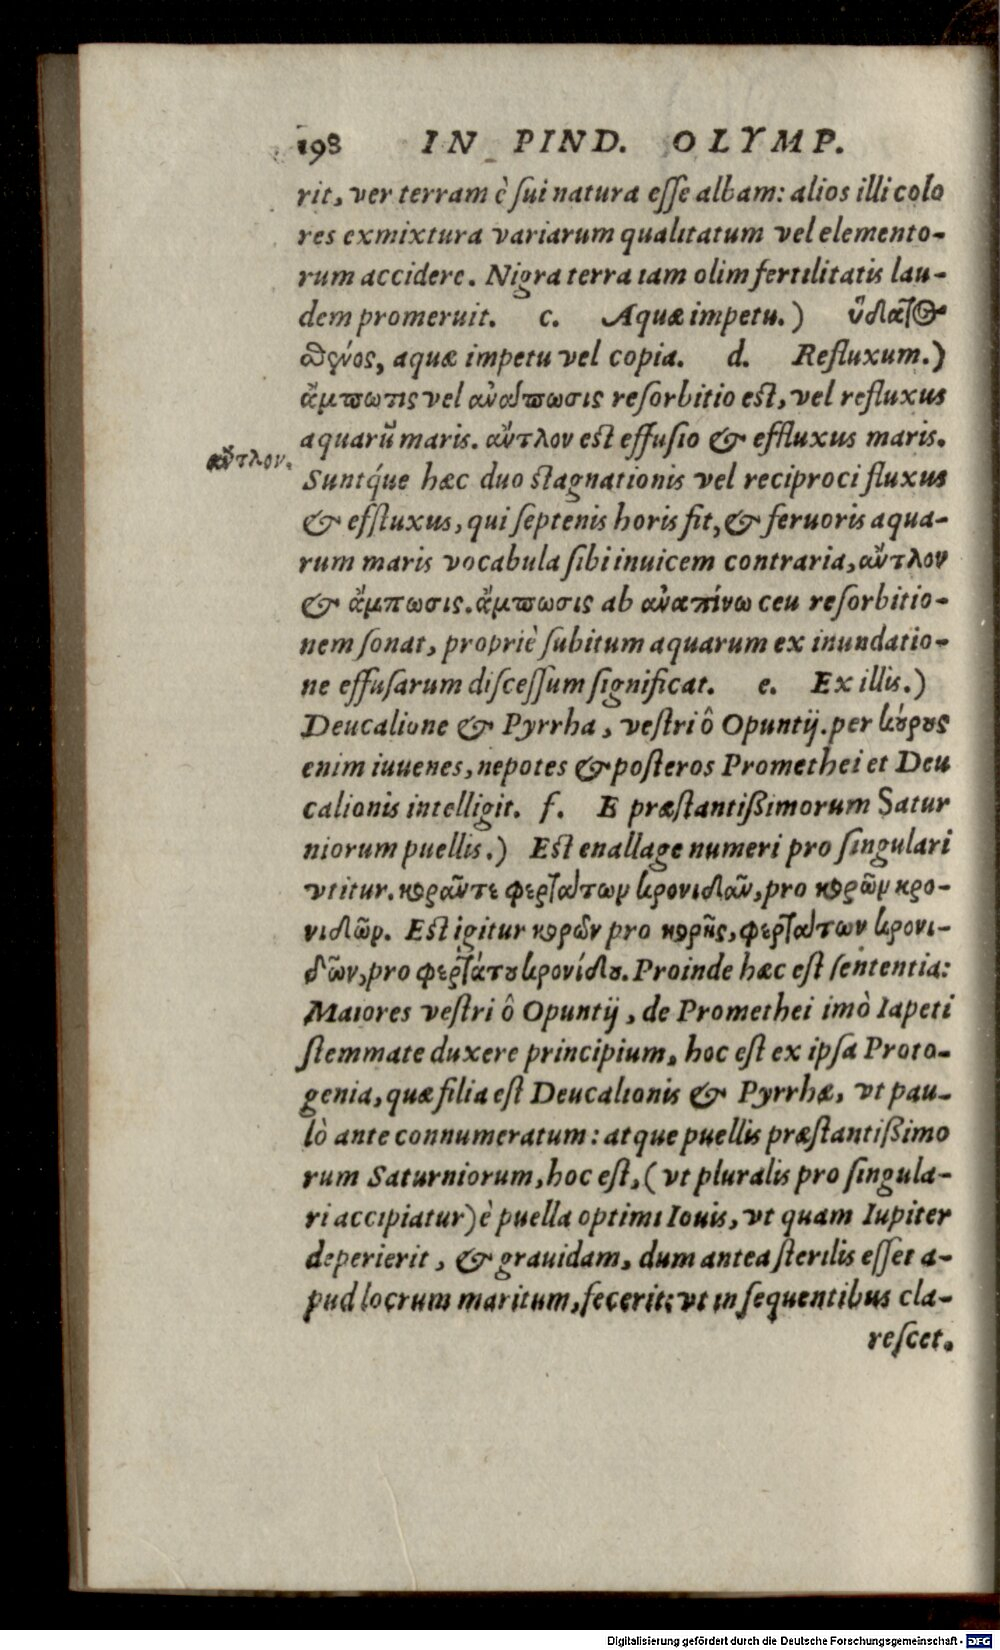 198 IN PIND. OLYMP.
rit, ver terram è sui natura esse albam: alios illi colo
res ex mixtura variarum qualitatum vel elemento-
rum accidere. Nigra terra iam olim fertilitatis lau-
dem promeruit. c. Aquæ impetu.) ὕδατος
σθένος, aquæ impetu vel copia. d. Refluxum.)
ἄμπωτις vel ἀνάπωσις resorbitio est, vel refluxus
aquarũ maris. ἄντλον est effusio & effluxus maris.
ἄντλον.
Suntq́ue hæc duo stagnationis vel reciproci fluxus
& efsluxus, qui septenis horis fit, & feruoris aqua-
rum maris vocabula sibi inuicem contraria, ἄντλον
& ἄμπωσις. ἄμπωσις ab ἀναπίνω ceu resorbitio-
nem sonat, propriè subitum aquarum ex inundatio-
ne effusarum discessum significat. e. Ex illis.)
Deucalione & Pyrrha, vestri ô Opuntij. per κόρους
enim iuuenes, nepotes & posteros Promethei et Deu
calionis intelligit. f. E præstantißimorum Satur
niorum puellis.) Est enallage numeri pro singulari
vtitur. κορᾶντε φερτάτων κρονιδᾶν, pro κορῶν κρο-
νιδῶν. Est igitur κορῶν pro κορῆς, φερτάτων κρονι-
δῶν, pro φερτάτου κρονίδου. Proinde hæc est sententia:
Maiores vestri ô Opuntij, de Promethei imò Iapeti
stemmate duxere principium, hoc est ex ipsa Proto-
genia, quæ filia est Deucalionis & Pyrrhæ, vt pau-
lò ante connumeratum: atque puellis præstantißimo
rum Saturniorum, hoc est, (vt pluralis pro singula-
ri accipiatur) è puella optimi Iouis, vt quam Iupiter
deperierit, & grauidam, dum antea sterilis esset a-
pud locrum maritum, fecerit: vt in sequentibus cla-
rescet.
Digitalisierung gefördert durch die Deutsche Forschungsgemeinschaft - DFG